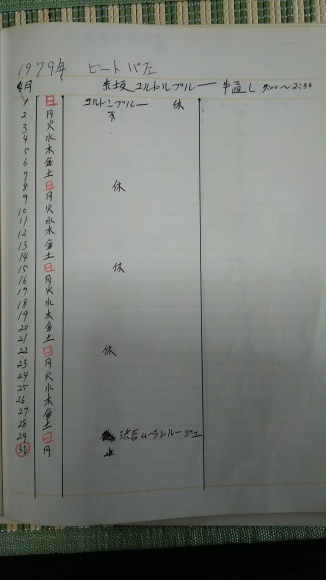 1979年 ビートパフェ
4月 赤坂 コルドンブルー 半通し 9:00〜2:30
1 日 コルドンブルー 休
2 月
3 火
4 水
5 木
6 金
7 土
8 日 休
9 月
10 火
11 水
12 木
13 金
14 土
15 日 休
16 月
17 火
18 水
19 木
20 金
21 土
22 日 休
23 月
24 火
25 水
26 木
27 金
28 土
29 日 渋谷ムーランルージュ
30 月